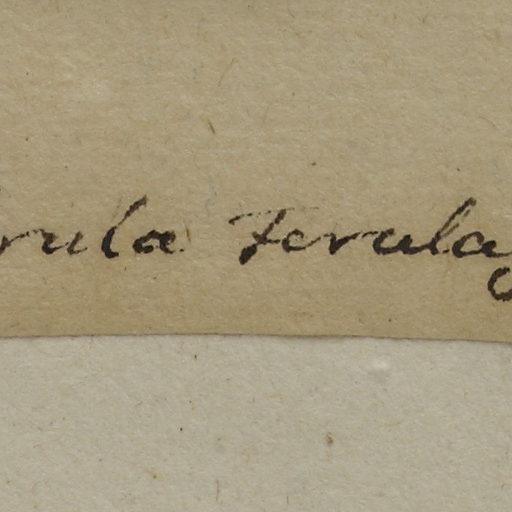 rula Ferulag